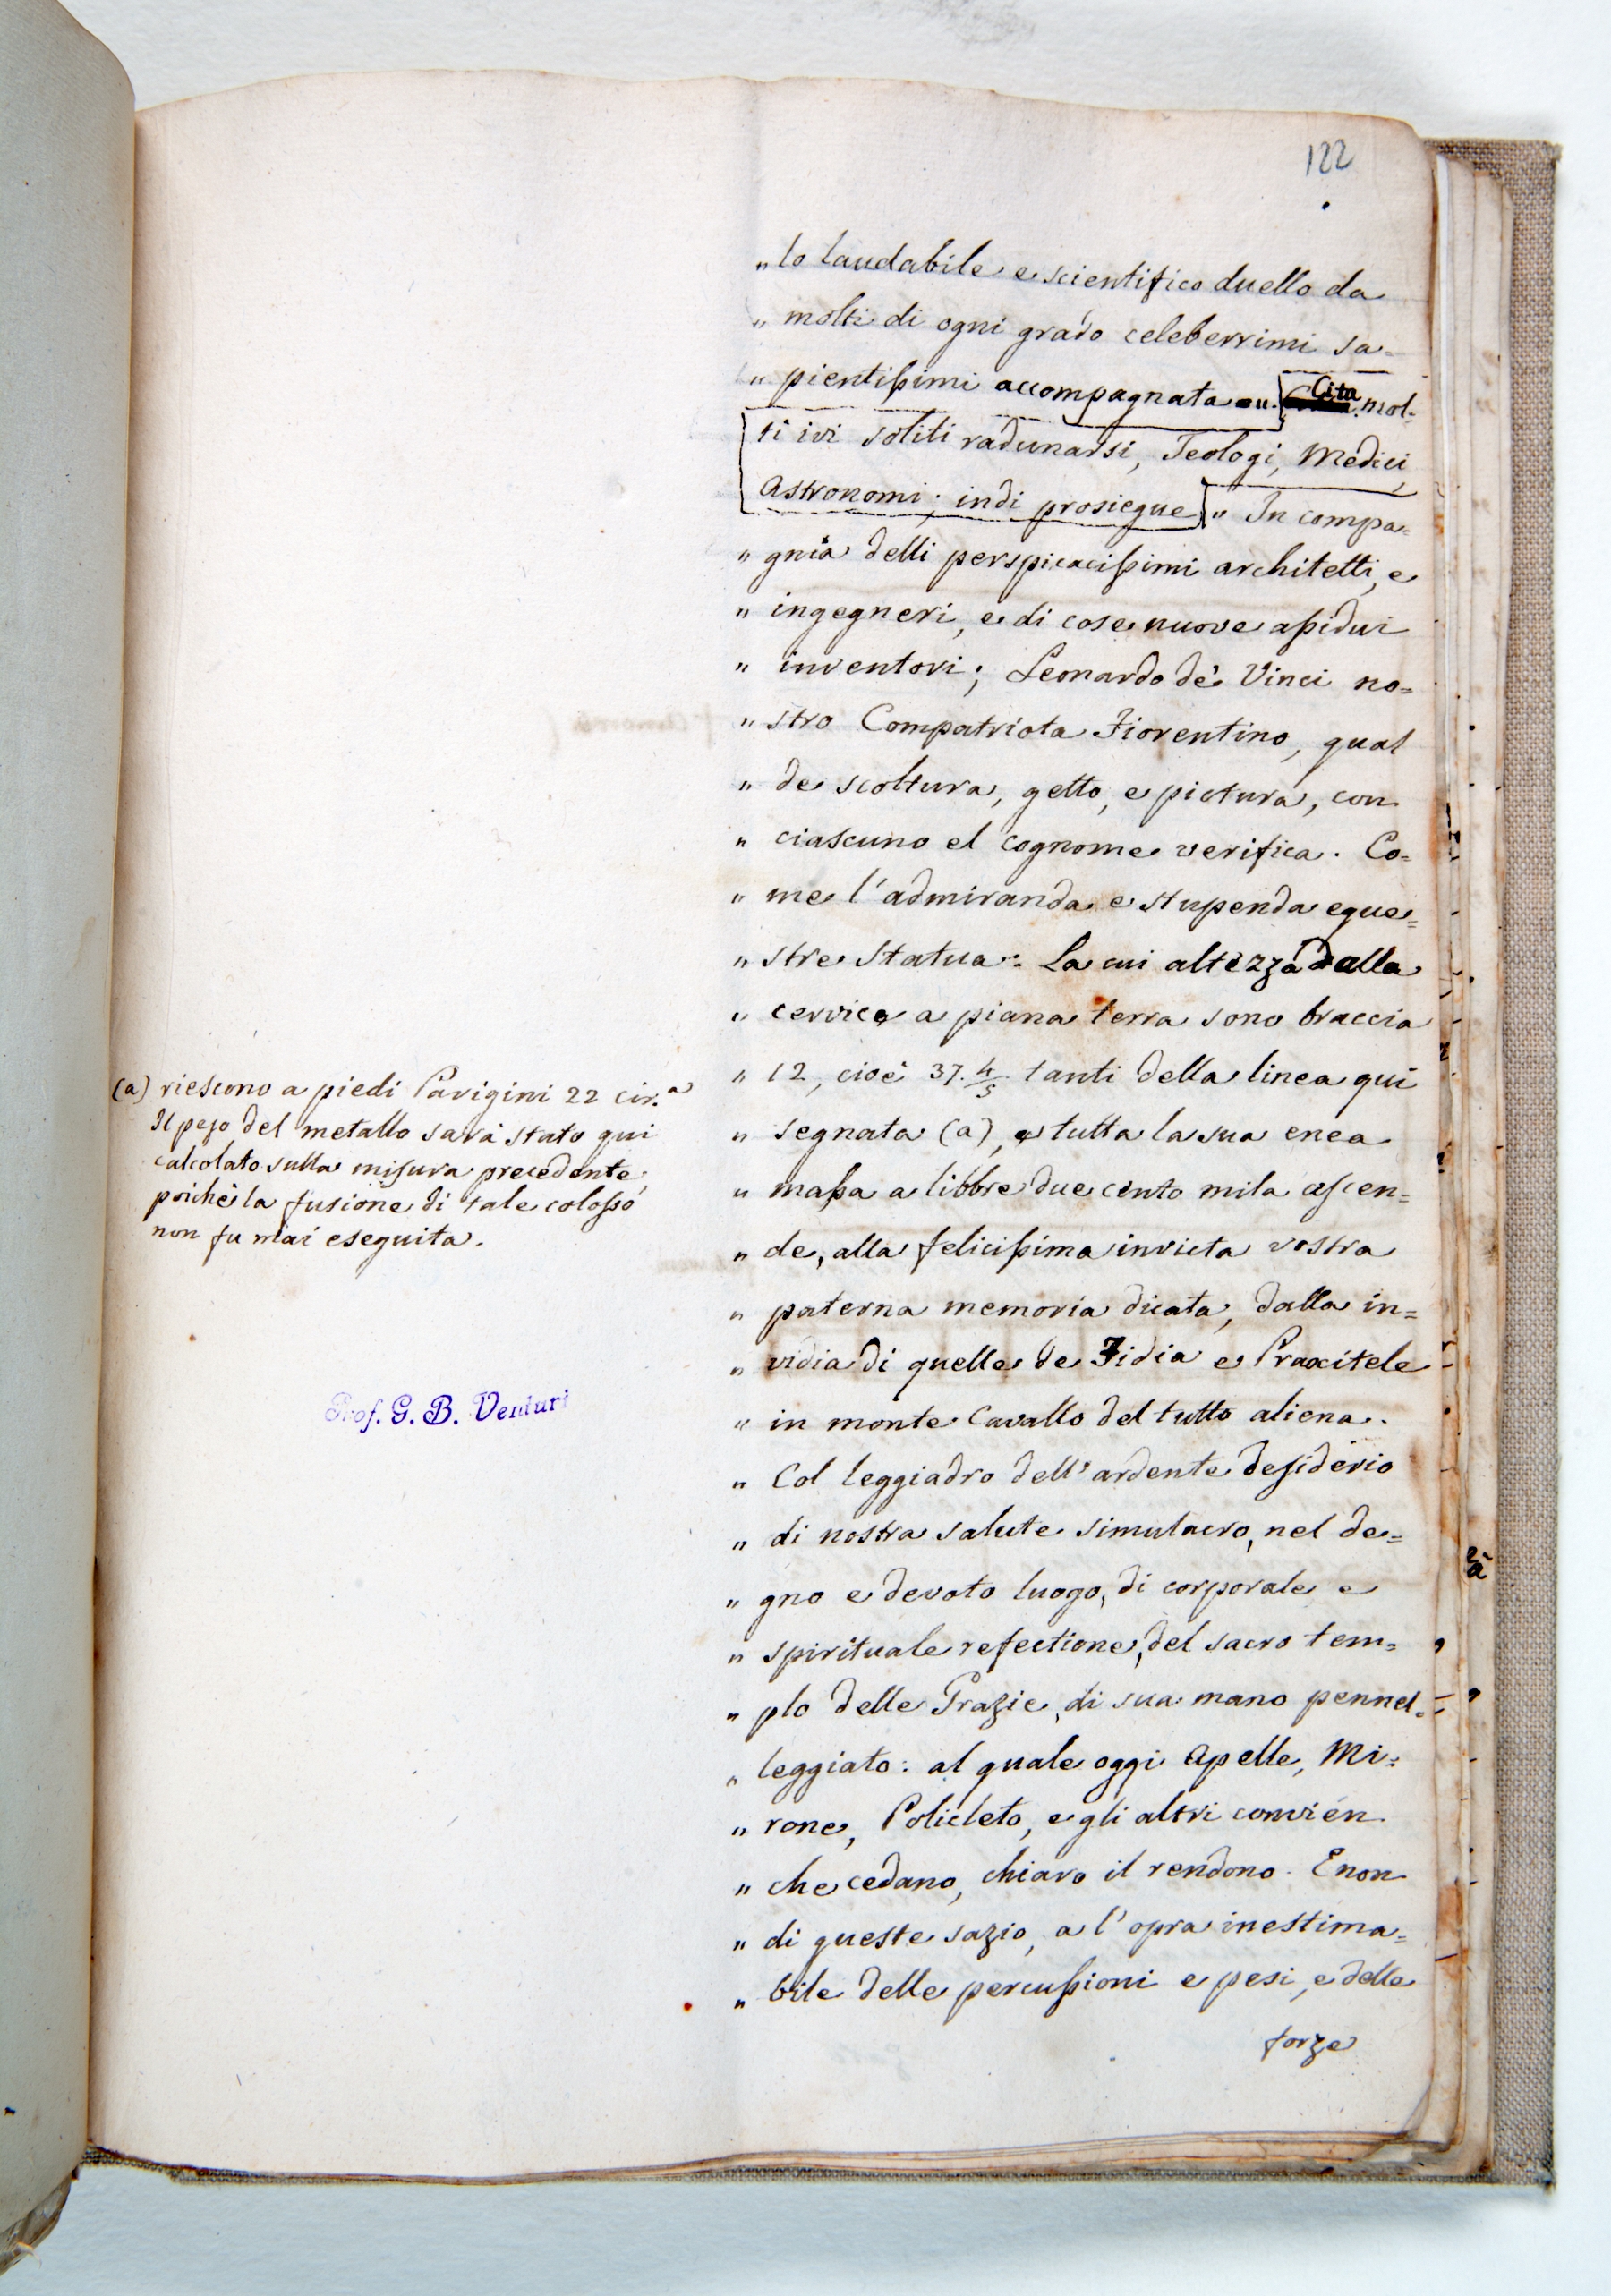 122
„ lo laudabile e scientifico duello da
„ molti di ogni grado celeberrimi sa-
„ pientissimi accompagnata =„. Cita mol-
ti ivi soliti radunarsi, Teologi, Medici,
Astronomi; indi prosiegue „ In compa-
„ gnia delli perspicacissimi architetti, e
„ ingegneri, e di cose nuove assidui
„ inventori; Leonardo de' Vinci no=
„ stro Compatriota Fiorentino, qual
„ de scoltura, getto, e pictura, con
„ ciascuno el cognome verifica. Co=
„ me l'admiranda e stupenda eque=
„ stre statua. La cui altezza dalla
„ cervice a piana terra sono braccia
„ 12, cioè 37. 4/5. tanti della linea qui
„ segnata (a), e tutta la sua enea
„ massa a libbre duecento mila ascen=
„ de, alla felicissima invicta vostra
„ paterna memoria dicata, dalla in=
„ vidia di quelle de Fidia e Praxitele
„ in monte Cavallo del tutto aliena.
„ Col leggiadro dell'ardente desiderio
„ di nostra salute simulacro, nel de=
„ gno e devoto luogo, di corporale e
„ spirituale refectione, del sacro tem=
„ plo delle Grazie, di sua mano pennel=
„ leggiato: al quale oggi Apelle, Mi=
„ rone, Policleto, e gli altri convien
„ che cedano, chiaro il rendono. E non
„ di queste sazio, a l'opra inestima=
„ bile delle percussioni e pesi, e delle
forze
(a) riescono a piedi Parigini 22 cir.ª
Il peso del metallo sarà stato qui
calcolato sulla misura precedente,
poichè la fusione di tale colosso
non fu mai eseguita.
Prof. G. B. Venturi